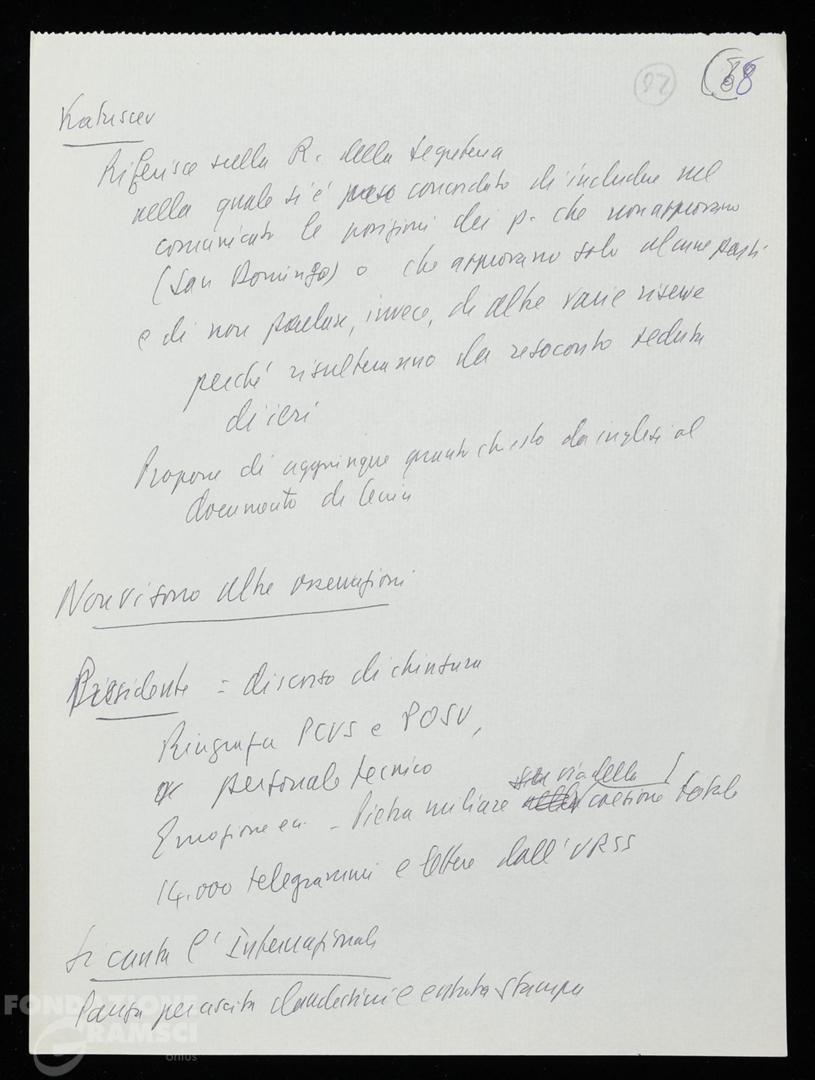 (88
26
Katuscev
Riferisce sulla R. della segreteria
nella quale si è concordato di includere nel
comunicato le posizioni dei p. che non approvano
(San Domingo) o che approvano solo alcune parti
e di non parlare, invece, di altre varie riserve
perché risulteranno da resoconto seduta
di ieri
Propone di aggiungere quanto chiesto da inglesi al
documento di Lenin
Non vi sono altre osservazioni
Presidente = discorso di chiusura
Ringrazia PCUS e POSU,
personale tecnico
Emozione ecc. - Pietra miliare via della coesione totale
14.000 telegrammi e lettere dall'URSS
Si canta l'Internazionale
Pausa per uscita clandestini e entrata stampa
FONDAZIONE
GRAMSCI
onlus